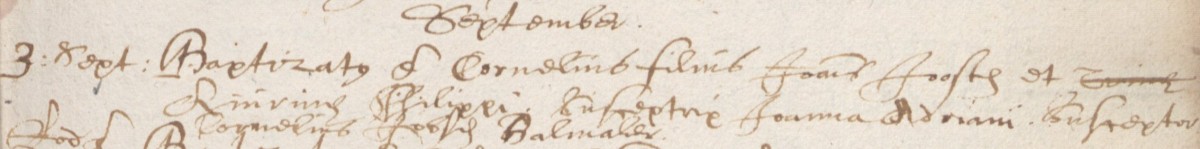 September.
3: Sept: Baptizatus est Cornelius filius Joannis Joosten et
Quirinen Philippi. Susceptrix Joanna Adriani. Susceptor
Cornelius Joosten